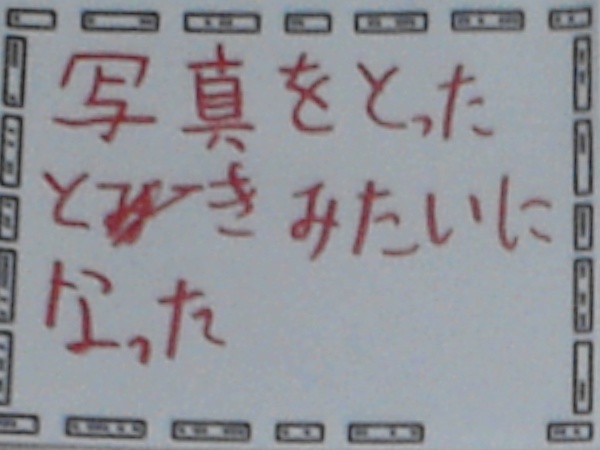 写真をとった
ときみたいに
なった